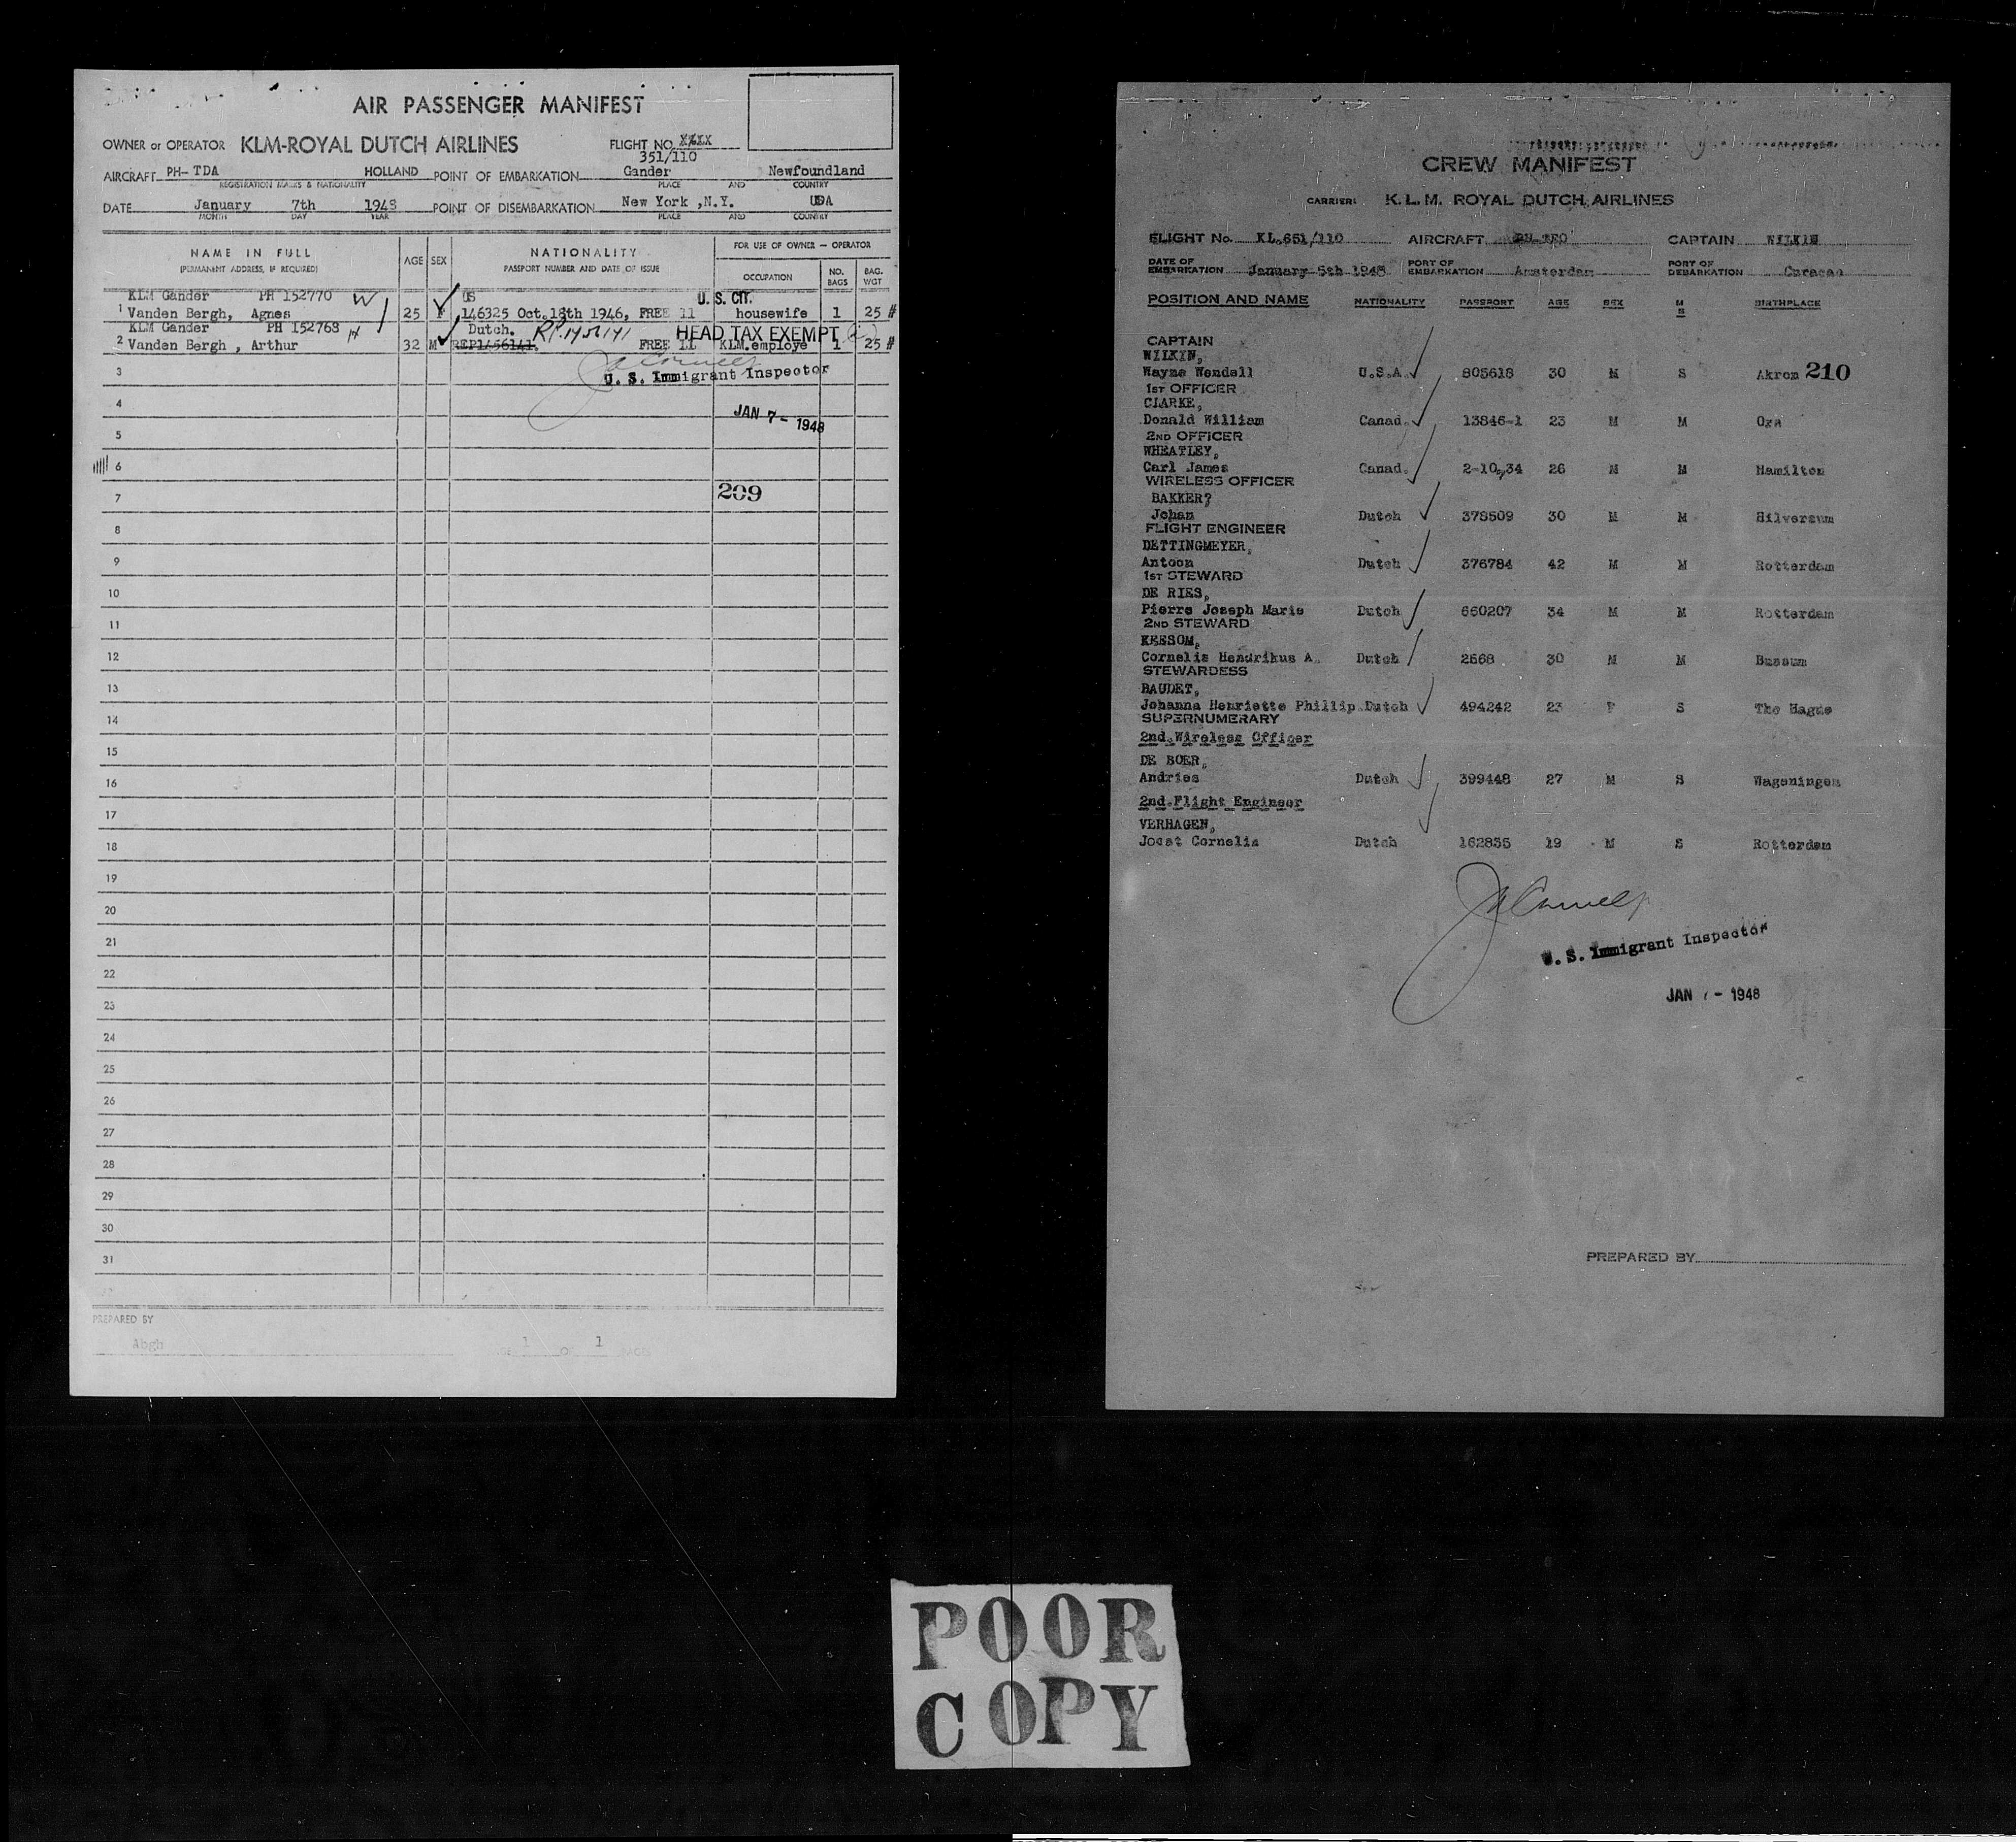 AIR PASSENGER MANIFEST
OWNER or OPERATOR KLM-ROYAL DUTCH AIRLINES FLIGHT NO.
351/110
AIRCRAFT PH-TDA HOLLAND POINT OF EMBARKATION Gander Newfoundland
REGISTRATION MARKS & NATIONALITY PLACE AND COUNTRY
DATE January 7th 1948 POINT OF DISEMBARKATION New York ,N.Y. USA
MONTH DAY YEAR PLACE AND COUNTRY
NAME IN FULL AGE SEX NATIONALITY FOR USE OF OWNER — OPERATOR
(PERMANENT ADDRESS, IF REQUIRED) PASSPORT NUMBER AND DATE OF ISSUE OCCUPATION NO. BAGS BAG. WGT
KLM Gander PH 152770 US U. S. CIT.
1 Vanden Bergh, Agnes 25 F 146325 Oct.18th 1946, FREE 11 housewife 1 25 #
KLM Gander PH 152768 Dutch. RP.1456141 HEAD TAX EXEMPT
2 Vanden Bergh , Arthur 32 M REP1456141. FREE 11 KLM.employe 1 25 #
3 U. S. Immigrant Inspector
4 JAN 7 - 1948
5
6
7 209
8
9
10
11
12
13
14
15
16
17
18
19
20
21
22
23
24
25
26
27
28
29
30
31
PREPARED BY
Abgh 1 OF 1 PAGES
CREW MANIFEST
CARRIER: K.L.M. ROYAL DUTCH AIRLINES
FLIGHT No. KL.651/110 AIRCRAFT CAPTAIN WILKIN
DATE OF EMBARKATION January 5th 1948 PORT OF EMBARKATION Amsterdam PORT OF DEBARKATION Curacao
POSITION AND NAME NATIONALITY PASSPORT AGE SEX M S BIRTHPLACE
CAPTAIN
WILKIN,
Wayne Wendall U.S.A. 805618 30 M S Akron 210
1ST OFFICER
CLARKE,
Donald William Canad. 13846-1 23 M M
2ND OFFICER
WHEATLEY,
Carl James Canad. 2-10,34 26 M M Hamilton
WIRELESS OFFICER
BAKKER?
Johan Dutch 378509 30 M M Hilversum
FLIGHT ENGINEER
DETTINGMEYER,
Antoon Dutch 376784 42 M M Rotterdam
1ST STEWARD
DE RIES,
Pierre Joseph Marie Dutch 660207 34 M M Rotterdam
2ND STEWARD
KEESOM,
Cornelis Hendrikus A. Dutch 2668 30 M M Bussum
STEWARDESS
BAUDET,
Johanna Henriette Phillip.Dutch 494242 23 F S The Hague
SUPERNUMERARY
2nd.Wireless Officer
DE BOER,
Andries Dutch 399448 27 M S Wageningen
2nd.Flight Engineer
VERHAGEN,
Joost Cornelis Dutch 162835 19 M S Rotterdam
U. S. Immigrant Inspector
JAN 7 - 1948
PREPARED BY
POOR
COPY